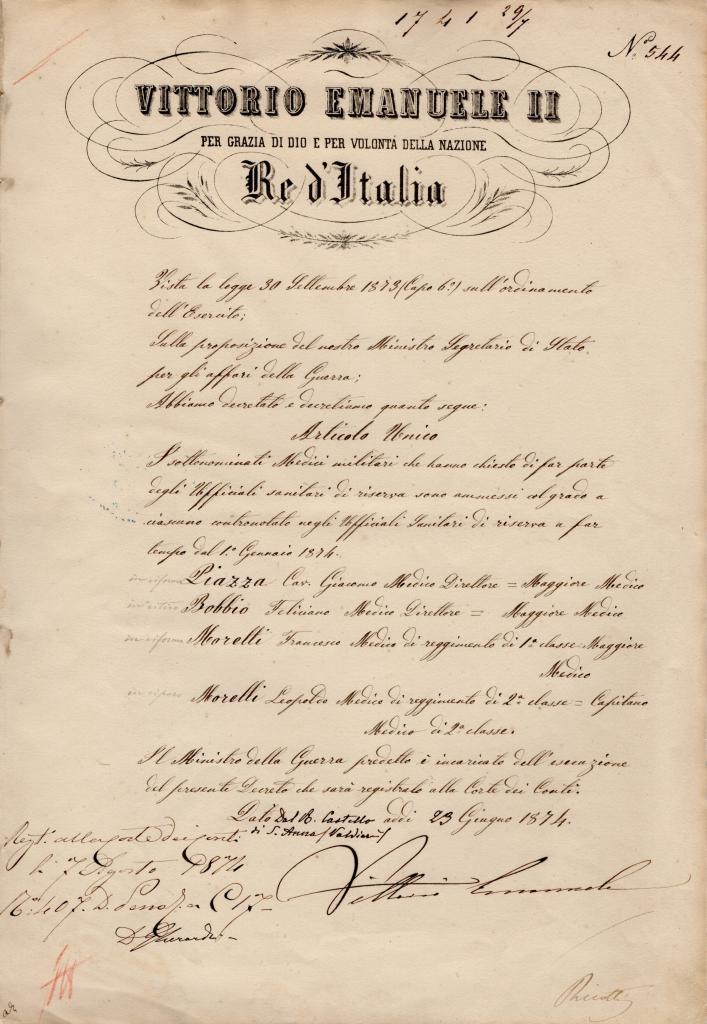 1741 29/7
N.° 544
VITTORIO EMANUELE II
PER GRAZIA DI DIO E PER VOLONTÀ DELLA NAZIONE
Re d'Italia
Vista la legge 30 Settembre 1873 (Capo 6°) sull'ordinamento
dell'Esercito;
Sulla proposizione del nostro Ministro Segretario di Stato
per gli affari della Guerra;
Abbiamo decretato e decretiamo quanto segue:
Articolo Unico
I sottonominati Medici militari che hanno chiesto di far parte
degli Uffiziali sanitari di riserva sono ammessi col grado a
ciascuno contronotato negli Uffiziali Sanitari di riserva a far
tempo dal 1° Gennaio 1874.
in riforma Piazza Cav. Giacomo Medico Direttore = Maggiore Medico
Bobbio Feliciano Medico Direttore = Maggiore Medico
in riforma Morelli Francesco Medico di reggimento di 1a classe Maggiore
Medico
in riposo Morelli Leopoldo Medico di reggimento di 2a classe = Capitano
Medico di 2a classe.
Il Ministro della Guerra predetto è incaricato dell'esecuzione
del presente Decreto che sarà registrato alla Corte dei Conti.
Dato Dal R. Castello addì 23 Giugno 1874.
di S. Anna (Valdieri)
Regto. alla Corte dei Conti
li 7 Agosto 1874
N° 407. D.
Vittorio Emanuele
D Gherardi
Ricotti